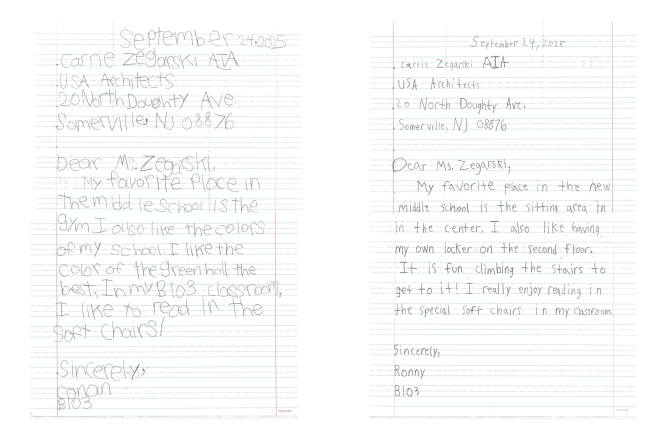 September 24.2025
Carrie Zegarski AIA
USA Architects
20 North Doughty Ave
Somerville, NJ 08876
Dear Ms. Zegarski,
My favorite place in
the middle school is the
gym I also like the colors
of my school I like the
color of the green hall the
best. In my B103 classroom,
I like to read in the
soft chairs!
Sincerely,
conan
B103
September 24, 2025
Carrie Zegarski AIA
USA Architects
20 North Doughty Ave.
Somerville, NJ 08876
Dear Ms. Zegarski,
My favorite place in the new
middle school is the sitting area in
in the center. I also like having
my own locker on the second floor.
It is fun climbing the stairs to
get to it! I really enjoy reading in
the special soft chairs in my classroom.
Sincerely,
Ronny
B103